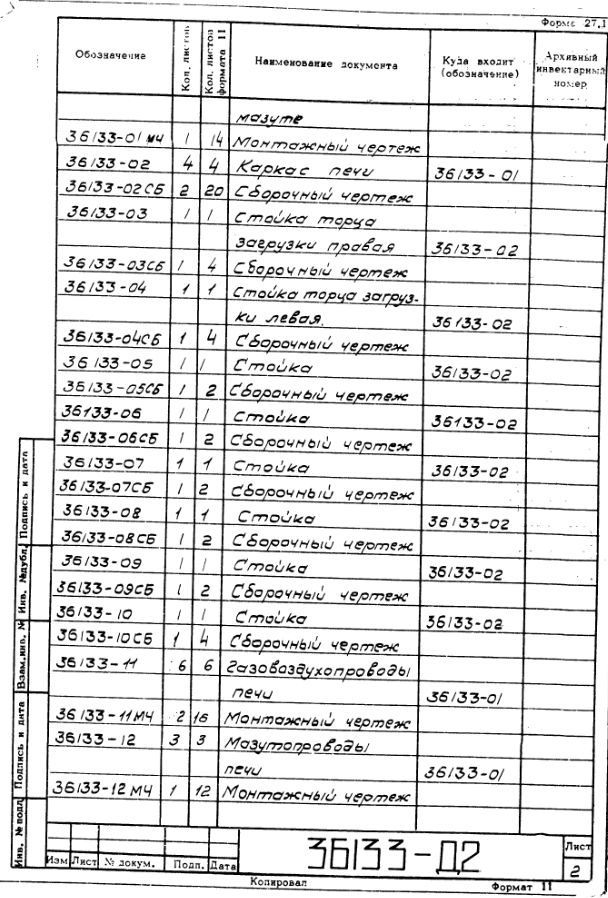 Форма 27.1
Обозначение Кол. листов Кол. листов формата 11 Наименование документа Куда входит (обозначение) Архивный инвентарный номер
мазуте
36133-01МЧ 1 14 Монтажный чертеж
36133-02 4 4 Каркас печи 36133-01
36133-02СБ 2 20 Сборочный чертеж
36133-03 1 1 Стойка торца
загрузки правая 36133-02
36133-03СБ 1 4 Сборочный чертеж
36133-04 1 1 Стойка торца загруз-
ки левая. 36133-02
36133-04СБ 1 4 Сборочный чертеж
36133-05 1 1 Стойка 36133-02
36133-05СБ 1 2 Сборочный чертеж
36133-06 1 1 Стойка 36133-02
36133-06СБ 1 2 Сборочный чертеж
36133-07 1 1 Стойка 36133-02
36133-07СБ 1 2 Сборочный чертеж
36133-08 1 1 Стойка 36133-02
36133-08СБ 1 2 Сборочный чертеж
36133-09 1 1 Стойка 36133-02
36133-09СБ 1 2 Сборочный чертеж
36133-10 1 1 Стойка 36133-02
36133-10СБ 1 4 Сборочный чертеж
36133-11 6 6 Газовоздухопроводы
печи 36133-01
36133-11МЧ 2 16 Монтажный чертеж
36133-12 3 3 Мазутопроводы
печи 36133-01
36133-12МЧ 1 12 Монтажный чертеж
Подпись и дата
Инв. №дубл.
Взам.инв. №
Подпись и дата
Инв. №подл.
Изм Лист № докум. Подп. Дата
36133-Д2
Лист
2
Копировал Формат 11